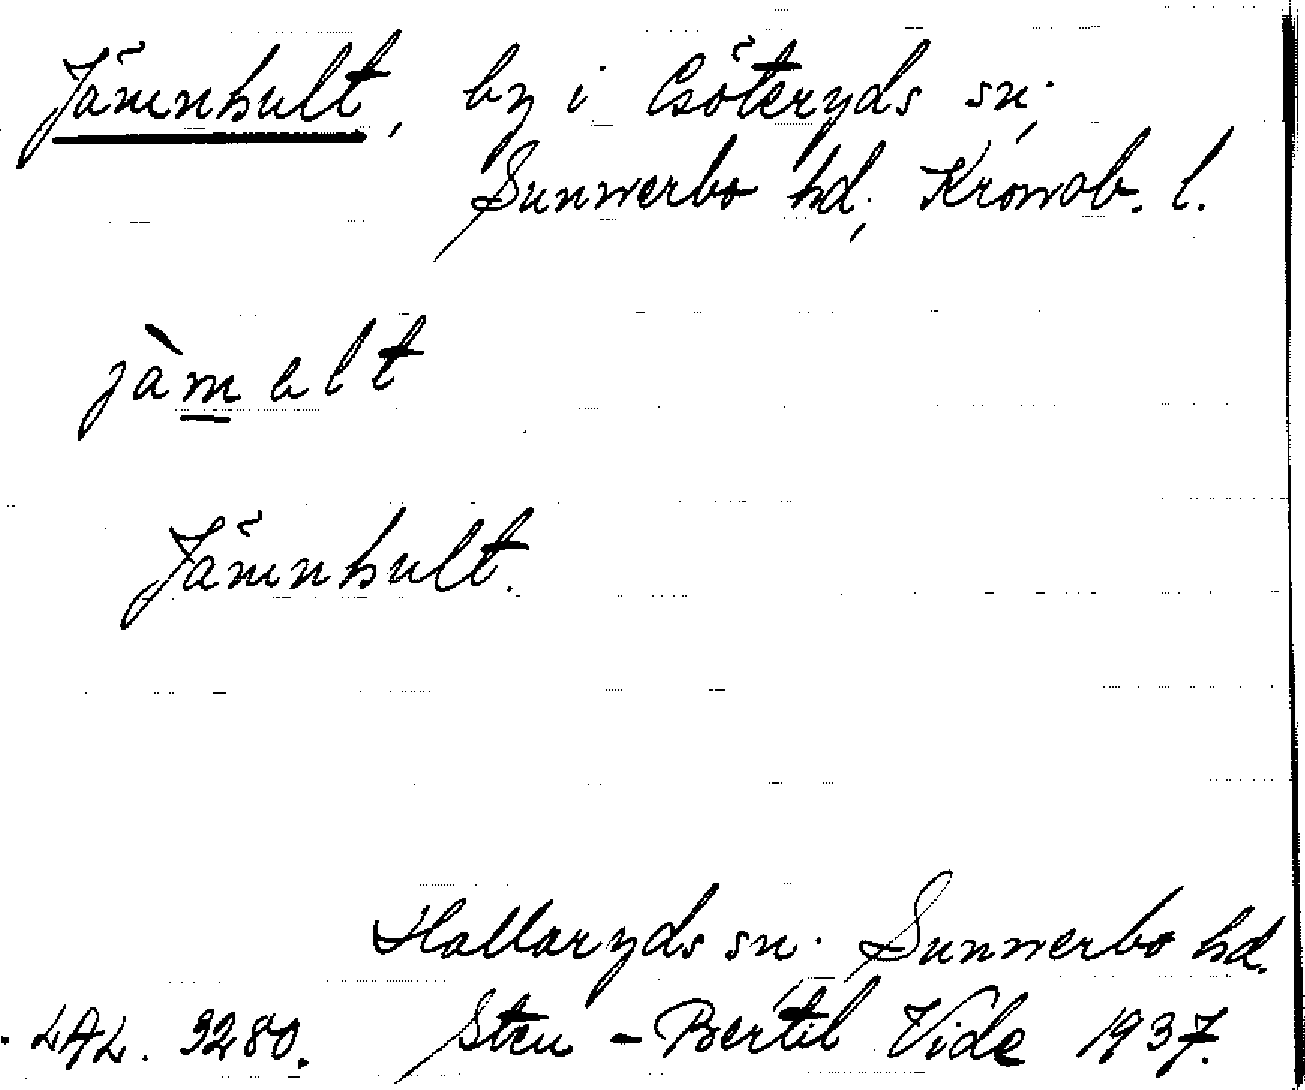 Jämnhult, by i Göteryds sn;
Sunnerbo hd, Kronob. l.
jàmelt
Jämnhult.
Hallaryds sn. Sunnerbo hd.
LAL. 3280. Sten-Bertil Vide 1937.